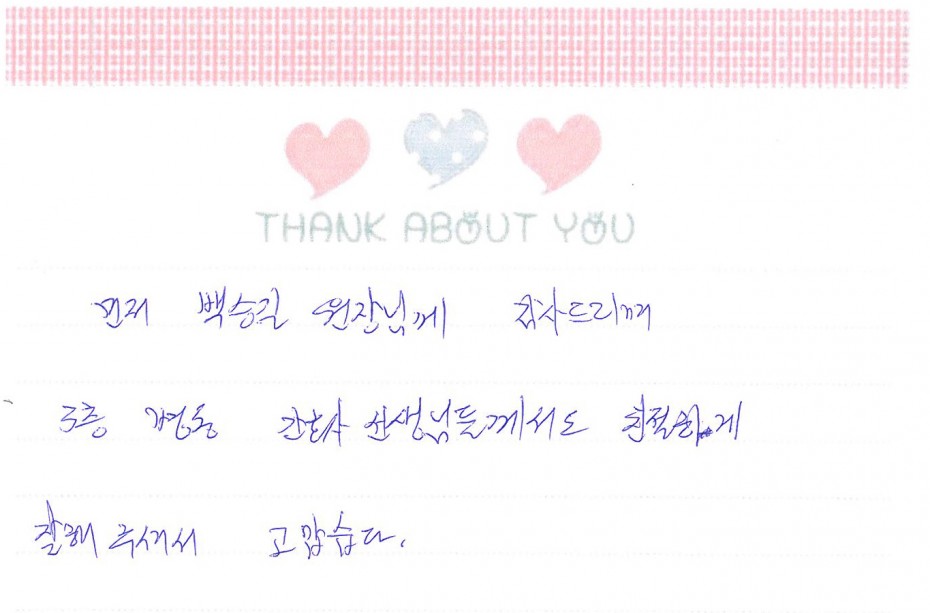 THANK ABOUT YOU
먼저 백승길 원장님께 감사드리며
3층 병동 간호사 선생님들께서도 친절하게
잘해 주셔서 고맙습니다.